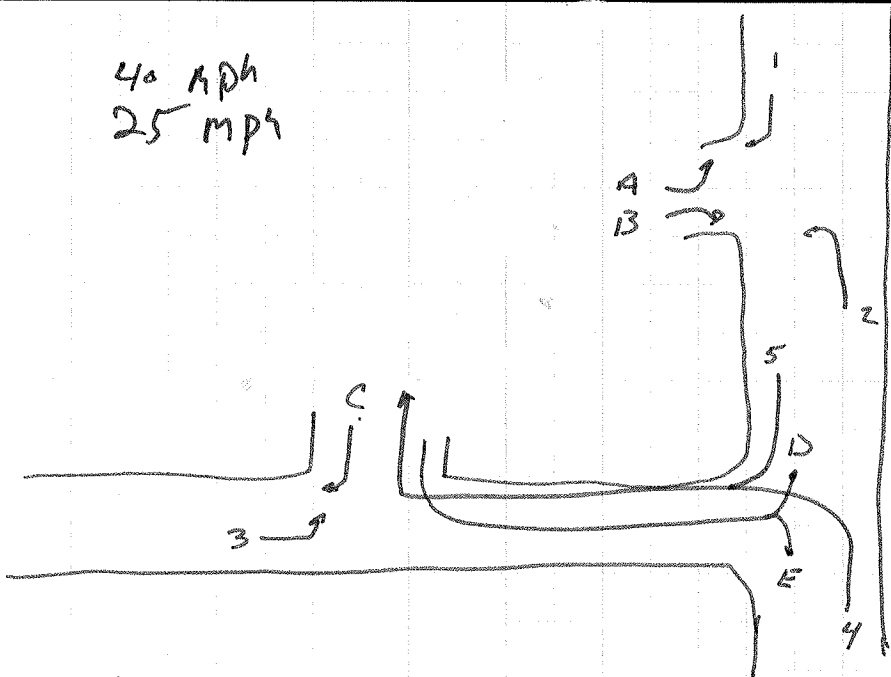 40 mph
25 mph
1
A
B
2
5
C
D
3
E
4